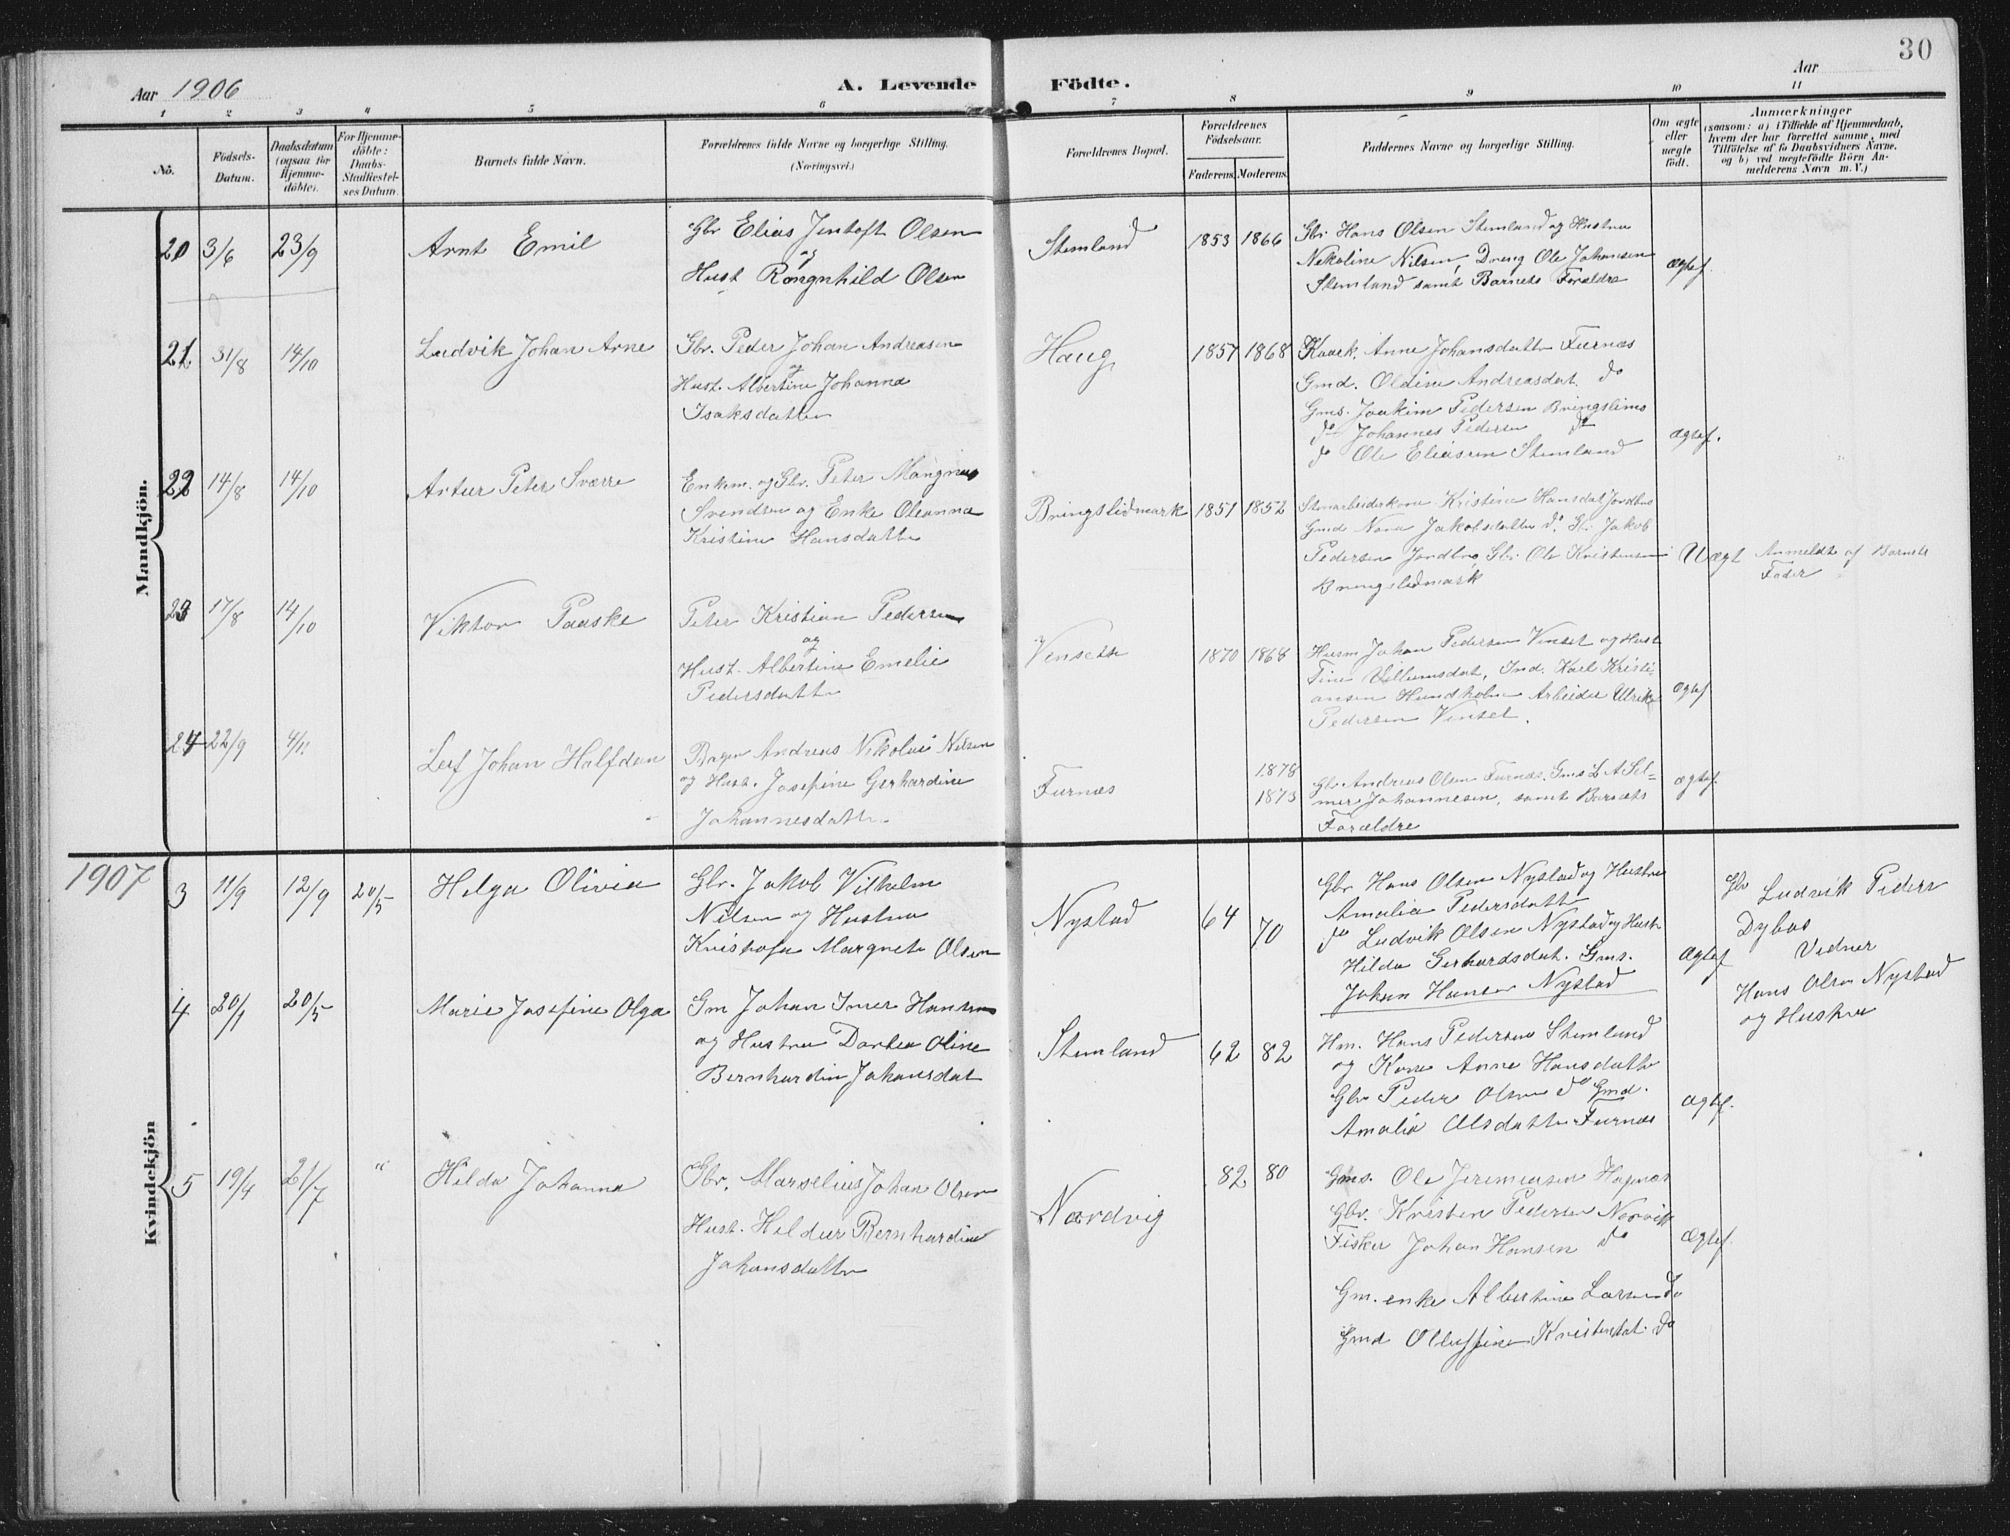 30
Aar 1906
A. Levende Födte.
Aar
1 2 3 4 5 6 7 8 9 10 11
No.
Födsels-Datum.
Daabsdatum (ogsaa for Hjemme-döbte).
For Hjemme-döbte: Daabs-Stadfæstel-ses Datum.
Barnets fulde Navn.
Forældrenes fulde Navne og borgerlige Stilling.
(Næringsvei.)
Forældrenes Bopæl.
Forældrenes Födselsaar.
Faderens. Moderens.
Faddernes Navne og borgerlige Stilling.
Om ægte eller uægte födt.
Anmærkninger
(saasom: a) i Tilfælde af Hjemmedaab,
hvem der har forrettet samme, med
Tilföielse af to Daabsvidners Navne.
og b) ved uægtefödte Börn An-
melderens Navn m. V.)
Mandkjön.
20 3/6 23/9 Arnt Emil
Gbr Elias Jentoft Olsen
og
Hust Rangnhild Olsen
Stemland 1853 1866
Gbr. Hans Olsen Stemland og Hustru
Nekoline Nilsen, Dreng Ole Johansen
Stemland samt Barnets Forældre
ægtef.
21 31/8 14/10 Ludvik Johan Arne
Gbr. Peder Johan Andreasen
og
Hust. Albertine Johanna
Isaksdatter
Haug 1857 1868
Kaark. Anne Johansdatter Furnæs
Gmd. Oldine Andreasdat. do
Gms. Joakim Pedersen Bringslimo
do Johannes Pedersen do
do Ole Eliassen Stemland
ægtef.
22 14/8 14/10 Artur Peter Sværre
Enkm. og Gbr. Peter Mangnus
Svendsen og Enke Oleanna
Kristine Hansdatter
Bringslidmark 1851 1852
Kristine Hansdat Jordbro
Gmd Nora Jakobsdatter do. Gbr. Jakob
Pedersen Jordbro, Gbr. Ole Kristensen
Bringslidmark
Uægt Anmeldt af Barnets
Fader
23 17/8 14/10 Viktor Paaske
Peter Kristian Pedersen
og
Hust. Albertine Emelie
Pedersdatter
Vensett 1870 1868
Husm Johan Pedersen Venset og Hust
Tine Villumsdat, Ind. Karl Kristi-
ansen Hundholm Arbeider Ulrik
Pedersen Venset.
ægtef
24 22/9 Leif Johan Halfdan
Andreas Nikolai Nilsen
og Hust. Josefine Gerhardine
Johannesdatter
Furnæs
1878
1873
Gbr Andreas Olsen Furnæs. Gms L A Sel-
mer Johannesen, samt Barnets
Forældre
ægtef.
1907
Kvindekjön
3 11/9 12/9 20/5 Helga Olivia
Gbr. Jakob Vilhelm
Nilsen og Hustru
Kristofa Margrete Olsen
Nystad 64 70
Gbr Hans Olsen Nystad og Hustru
Amalia Pedersdatter
do Ludvik Olsen Nystad og Hustr
Hilda Gerhardsdat. Gms.
Johan Hansen Nystad
ægtef
Gbr Ludvik Peders
Vidner
Hans Olsen Nystad
og Hustru
4 20/1 20/5 Marie Josefine Olga
Gm Johan Imer Hansen
og Hustru Dortea Oline
Bernhardin Johansdat
Stemland 62 82
Hm. Hans Pedersen Stemland
og Kone Anne Hansdatter
Gbr Peder Olsen do Gmd.
Amalia Olsdatter Furnæs
ægtef.
5 19/4 21/7 " Hilda Johanna
Gbr. Marselius Johan Olsen
Hust. Hildur Bernhardine
Johansdatter
Nordvig 82 80
Gms. Ole Jeremiasen Hopnæs
Gbr. Kristen Pedersen Norvik
Fisker Johan Hansen do
Gm.enke Albertine Larsen do
Gmd Kristendat. do
ægtef.